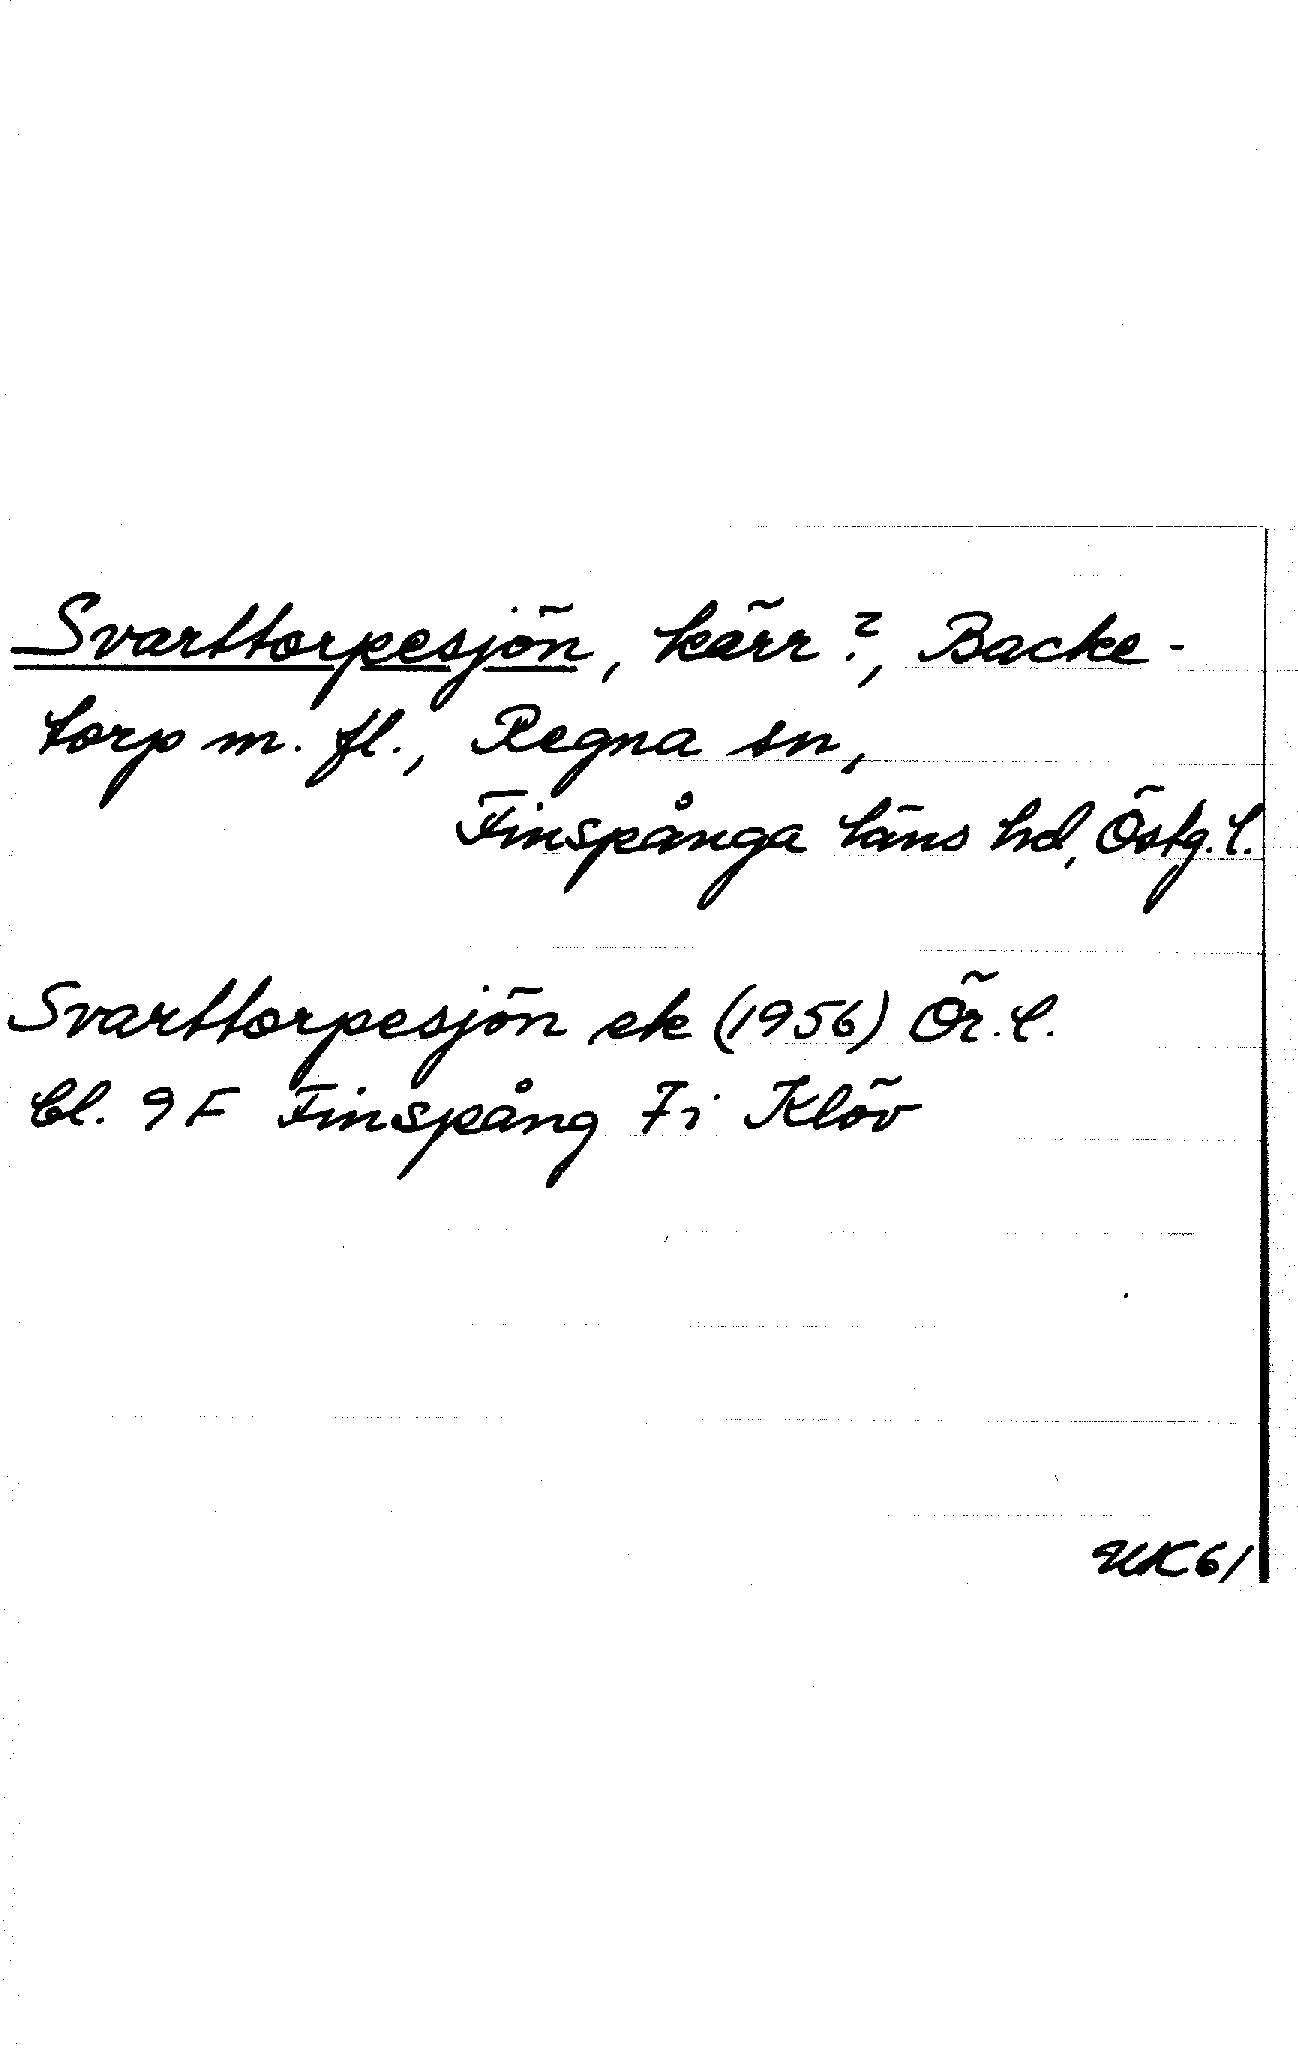 Svarttorpesjön, kärr?, Backe-
torp m. fl., Regna sn,
Finspånga läns hd, Östg. l.
Svarttorpesjön ek (1956) Ör. l.
bl. 9 F Finspång 7i Klöv
UK61